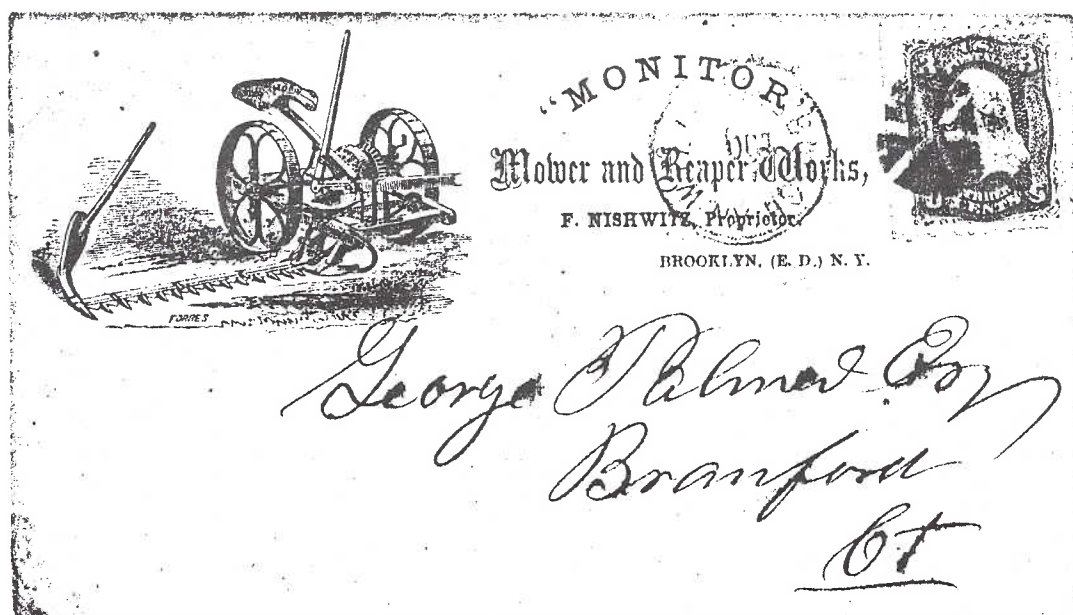 "MONITOR"
Mower and Reaper Works,
F. NISHWITZ, Proprietor.
BROOKLYN, (E. D.) N. Y.
FORBES
George Palmer Esq
Branford
Ct